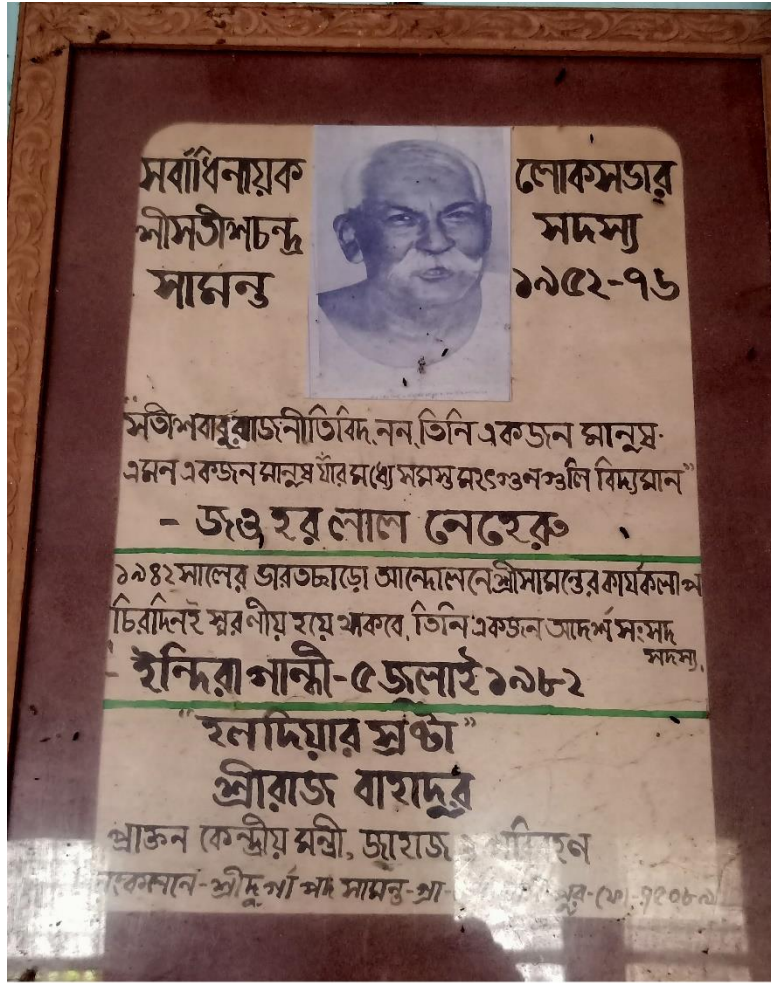 সর্বাধিনায়ক
শ্রীসতীশচন্দ্র
সামন্ত
লোকসভার
সদস্য
১৯৫২-৭৬
"সতীশবাবু রাজনীতিবিদ্ নন্, তিনি একজন মানুষ-
এমন একজন মানুষ যাঁর মধ্যে সমস্ত মহৎগুনগুলি বিদ্যমান"
- জওহরলাল নেহেরু
১৯৪২ সালের ভারতছাড়ো আন্দোলনে শ্রীসামন্তের কার্যকলাপ
চিরদিনই স্মরণীয় হয়ে থাকবে, তিনি একজন আদর্শ সংসদ
সদস্য,
- ইন্দিরা গান্ধী-৫ জুলাই ১৯৮২
"হলদিয়ার স্রষ্টা"
শ্রীরাজ বাহাদুর
প্রাক্তন কেন্দ্রীয় মন্ত্রী, জাহাজ
শ্রীদুর্গা পদ সামন্ত-গ্রা-